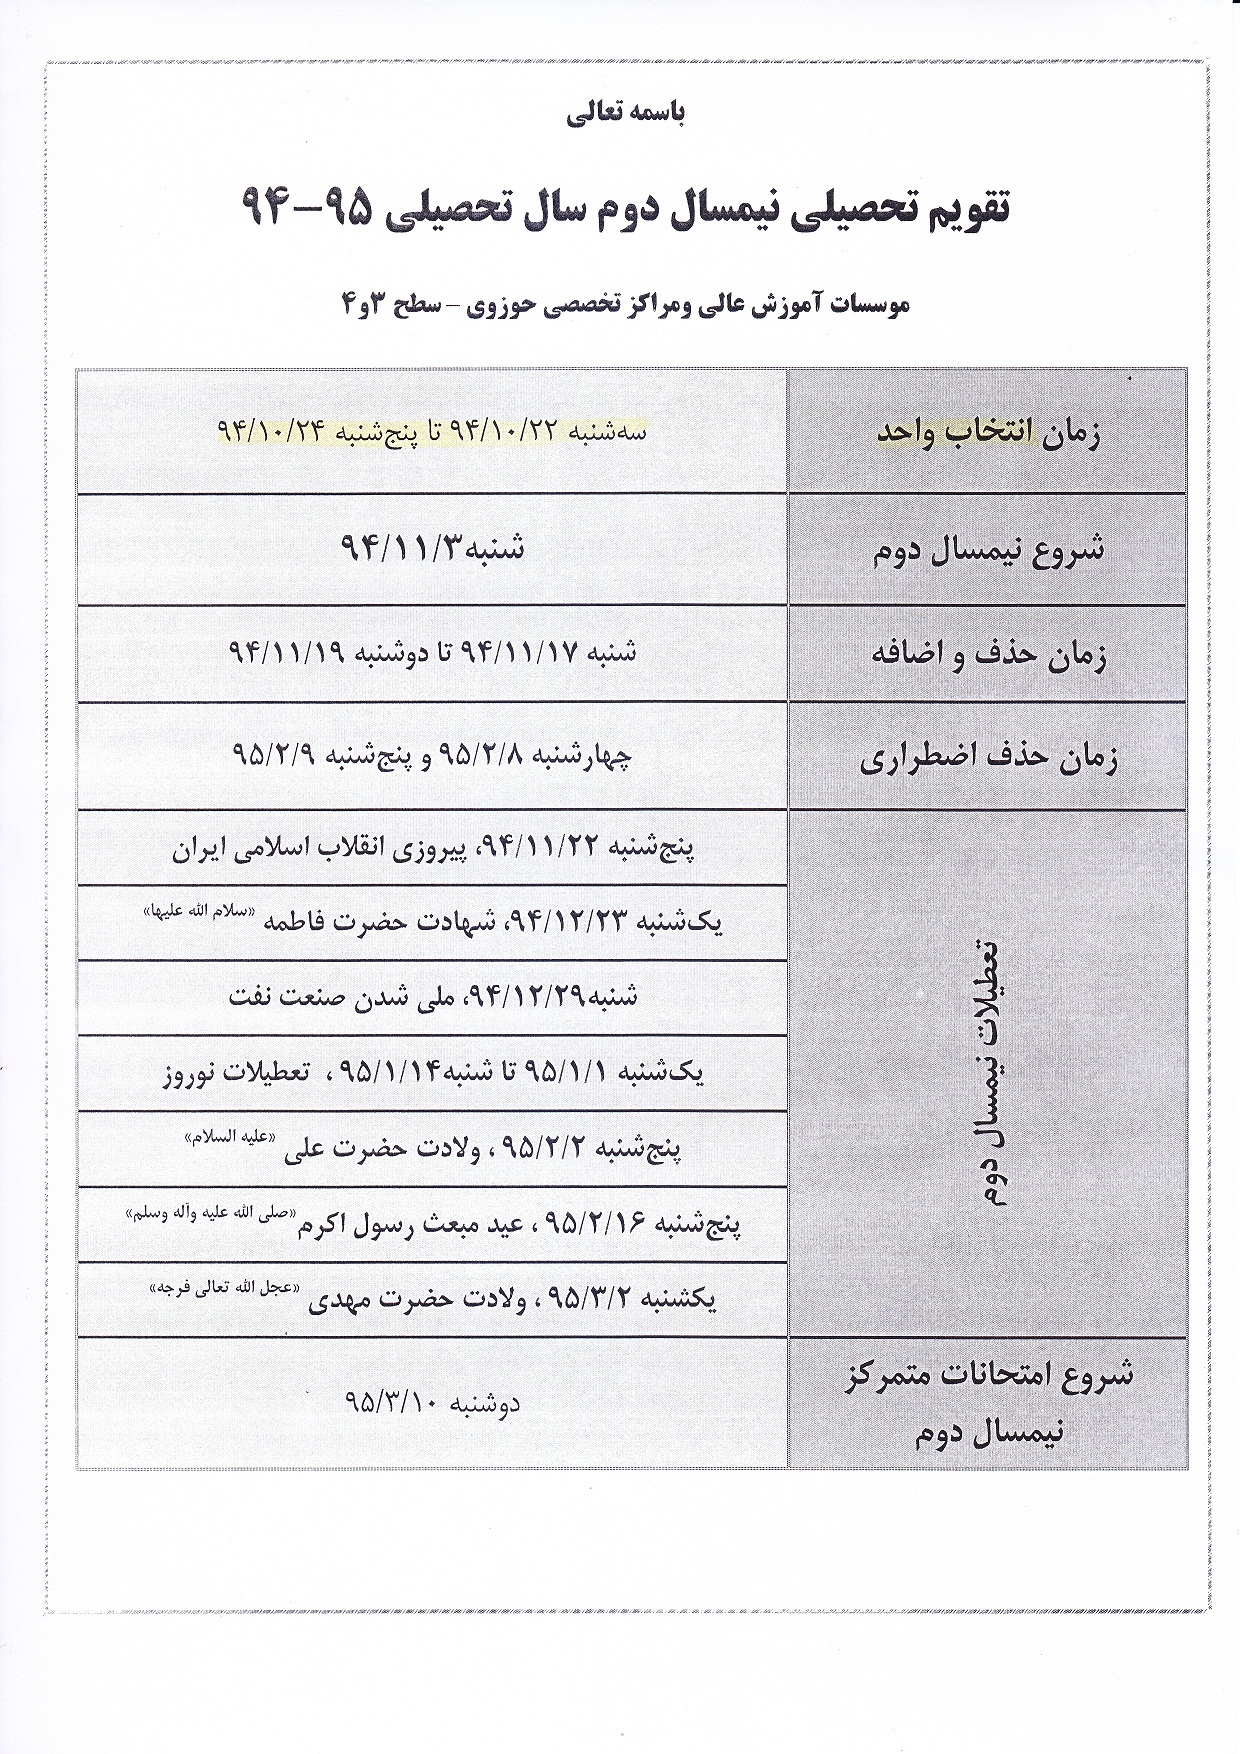 باسمه تعالی
تقویم تحصیلی نیمسال دوم سال تحصیلی ۹۵-۹۴
موسسات آموزش عالی ومراکز تخصصی حوزوی – سطح ۳و۴
زمان انتخاب واحد
سه‌شنبه ۹۴/۱۰/۲۲ تا پنج‌شنبه ۹۴/۱۰/۲۴
شروع نیمسال دوم
شنبه۹۴/۱۱/۳
زمان حذف و اضافه
شنبه ۹۴/۱۱/۱۷ تا دوشنبه ۹۴/۱۱/۱۹
زمان حذف اضطراری
چهارشنبه ۹۵/۲/۸ و پنج‌شنبه ۹۵/۲/۹
تعطیلات نیمسال دوم
پنج‌شنبه ۹۴/۱۱/۲۲، پیروزی انقلاب اسلامی ایران
یک‌شنبه ۹۴/۱۲/۲۳، شهادت حضرت فاطمه «سلام الله علیها»
شنبه۹۴/۱۲/۲۹، ملی شدن صنعت نفت
یک‌شنبه ۹۵/۱/۱ تا شنبه۹۵/۱/۱۴ ، تعطیلات نوروز
پنج‌شنبه ۹۵/۲/۲ ، ولادت حضرت علی «علیه السلام»
پنج‌شنبه ۹۵/۲/۱۶ ، عید مبعث رسول اکرم «صلی الله علیه وآله وسلم»
یکشنبه ۹۵/۳/۲ ، ولادت حضرت مهدی «عجل الله تعالی فرجه»
شروع امتحانات متمرکز
نیمسال دوم
دوشنبه ۹۵/۳/۱۰